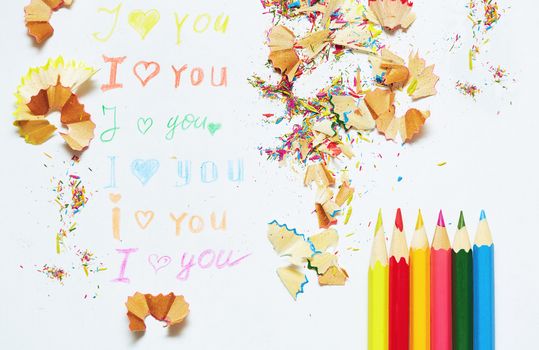 I ♡ you
I ♡ you
I ♡ you
I ♡ you
i ♡ you
I ♡ you